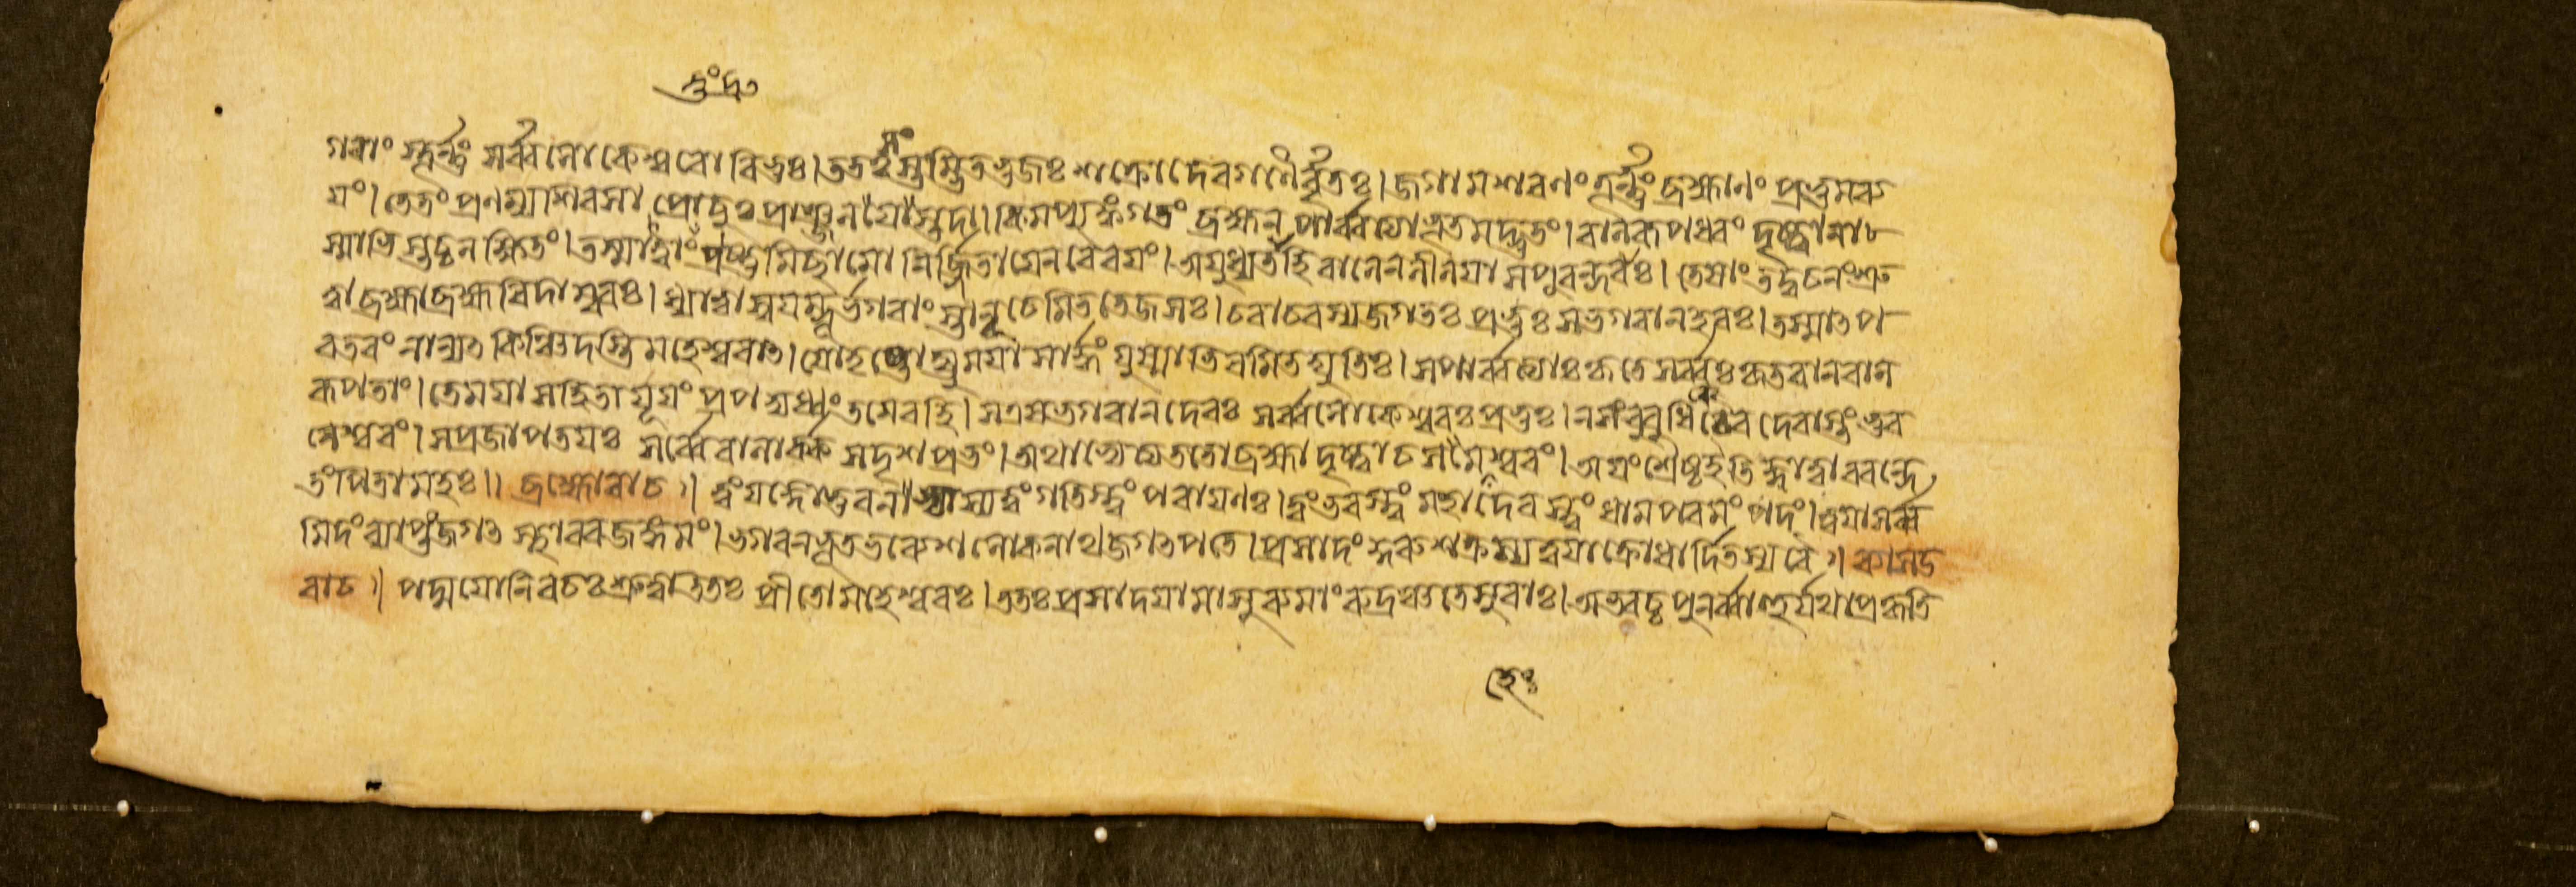 ন্তুং দ্রু
গবাং স্তূর্ণ্ণং সর্ব্বলোকেশ্বরো বিভুঃ। ততঃ সংস্তম্ভিতভুজঃ শক্রো দেবগণৈর্বৃতঃ। জগাম শরণং তূর্ণ্ণং ব্রহ্মাণং প্রভুমব্য
য়ং। তে তং প্রণম্য শিরসা প্রোচুঃ প্রাঞ্জলয়স্তদা। কিমপ্যঙ্কগতং ব্রহ্মন্ পার্ব্বত্যা ভূতমদ্ভুতং। বালরূপধরং দৃষ্ট্বা নাচ
স্মাভিস্তচ্চ লক্ষিতং। তস্মাত্ত্বাং প্রষ্টুমিছামো নির্জ্জিতা যেন বৈ বয়ং। অযুধ্যতা হি বালেন লীলয়া সপুরন্দরাঃ। তেষাং তদ্বচনং শ্রু
ত্বা ব্রহ্মা ব্রহ্মবিদাম্বরঃ। ধ্যাত্বা স্বয়ম্ভূর্ভগবাং স্তানূচেমিততেজসঃ। চরাচরস্য জগতঃ প্রভুঃ স ভগবান্ হরঃ। তস্মাত্ প
রতরং নান্যত্ কিঞ্চিদস্তি মহেশ্বরাত্। যো হ্যুময়া সার্দ্ধং যুষ্মাভিরমিতদ্যুতিঃ। স পার্ব্বত্যাঃ কৃতে সর্ব্বঃ কৃতবান্ বাল
রূপতাং। তে ময়া সহিতা যূয়ং প্রপদ্যধ্বং তমেব হি। স এষ ভগবান্ দেবঃ সর্ব্বলোকেশ্বরঃ প্রভুঃ। ন সংবুবুধিরে চৈব দেবাস্তং ভুব
নেশ্বরং। সপ্রজাপতয়ঃ সর্ব্বে বালার্ক্কসদৃশপ্রভং। অথাভ্যেত্য ততো ব্রহ্মা দৃষ্ট্বা চ স মহেশ্বরং। অয়ং শ্রেষ্ঠ ইতি জ্ঞাত্বা ববন্দে
তং পিতামহঃ॥ ব্রহ্মোবাচ। ত্বং যজ্ঞো ভুবনস্যাস্য ত্বং গতিস্ত্বং পরায়ণঃ। ত্বং ভবস্ত্বং মহাদেবস্ত্বং ধাম পরমং পদং। ত্বয়া সর্ব্ব
মিদং ব্যাপ্তং জগত্ স্থাবরজঙ্গমং। ভগবন্ ভূতভব্যেশ লোকনাথ জগত্পতে। প্রসাদং কুরু শক্রস্য ত্বয়া ক্রোধার্দ্দিতস্য বৈ। ব্যাস উ
বাচ। পদ্মযোনিবচঃ শ্রুত্বা ততঃ প্রীতো মহেশ্বরঃ। ততঃ প্রসাদয়ামাসুরুমাং রুদ্রঞ্চ তে সুরাঃ। অভবচ্চ পুনর্ব্বাহুর্যথাপ্রকৃতি